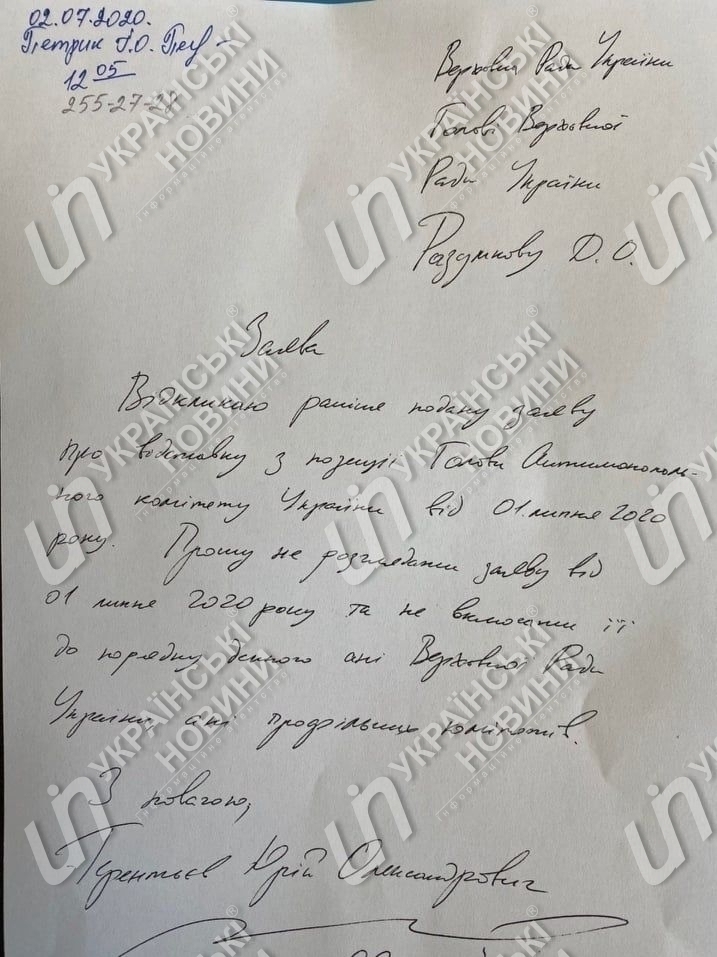 02.07.2020.
Петрик І.О.
12 05
255-27-28
Верховна Рада України
Голові Верховної
Ради України
Разумкову Д.О.
Заява
Відкликаю раніше подану заяву
про відставку з позиції Голови Антимонополь-
ного комітету України від 01 липня 2020
року. Прошу не розглядати заяву від
01 липня 2020 року та не включати її
до порядку денного ані Верховної Ради
України, ані профільних комітетів.
З повагою,
Терентьєв Юрій Олександрович
UN УКРАЇНСЬКІ НОВИНИ
інформаційне агентство